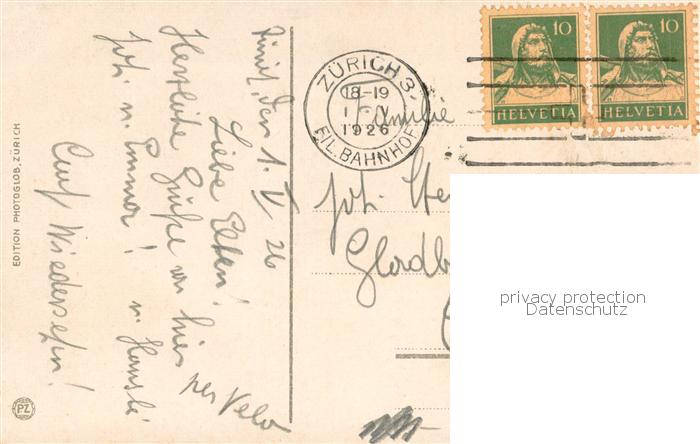 Zürich, den 1. V. 26
Liebe Eltern!
Herzliche Grüße von hier per Velo
Joh. u. Emma! u. Hansli
Auf Wiedersehn!
EDITION PHOTOGLOB, ZÜRICH
PZ
ZÜRICH 3
18-19
1926
FIL. BAHNHOF
10
HELVETIA
10
HELVETIA
Familie
Joh.
privacy protection
Datenschutz